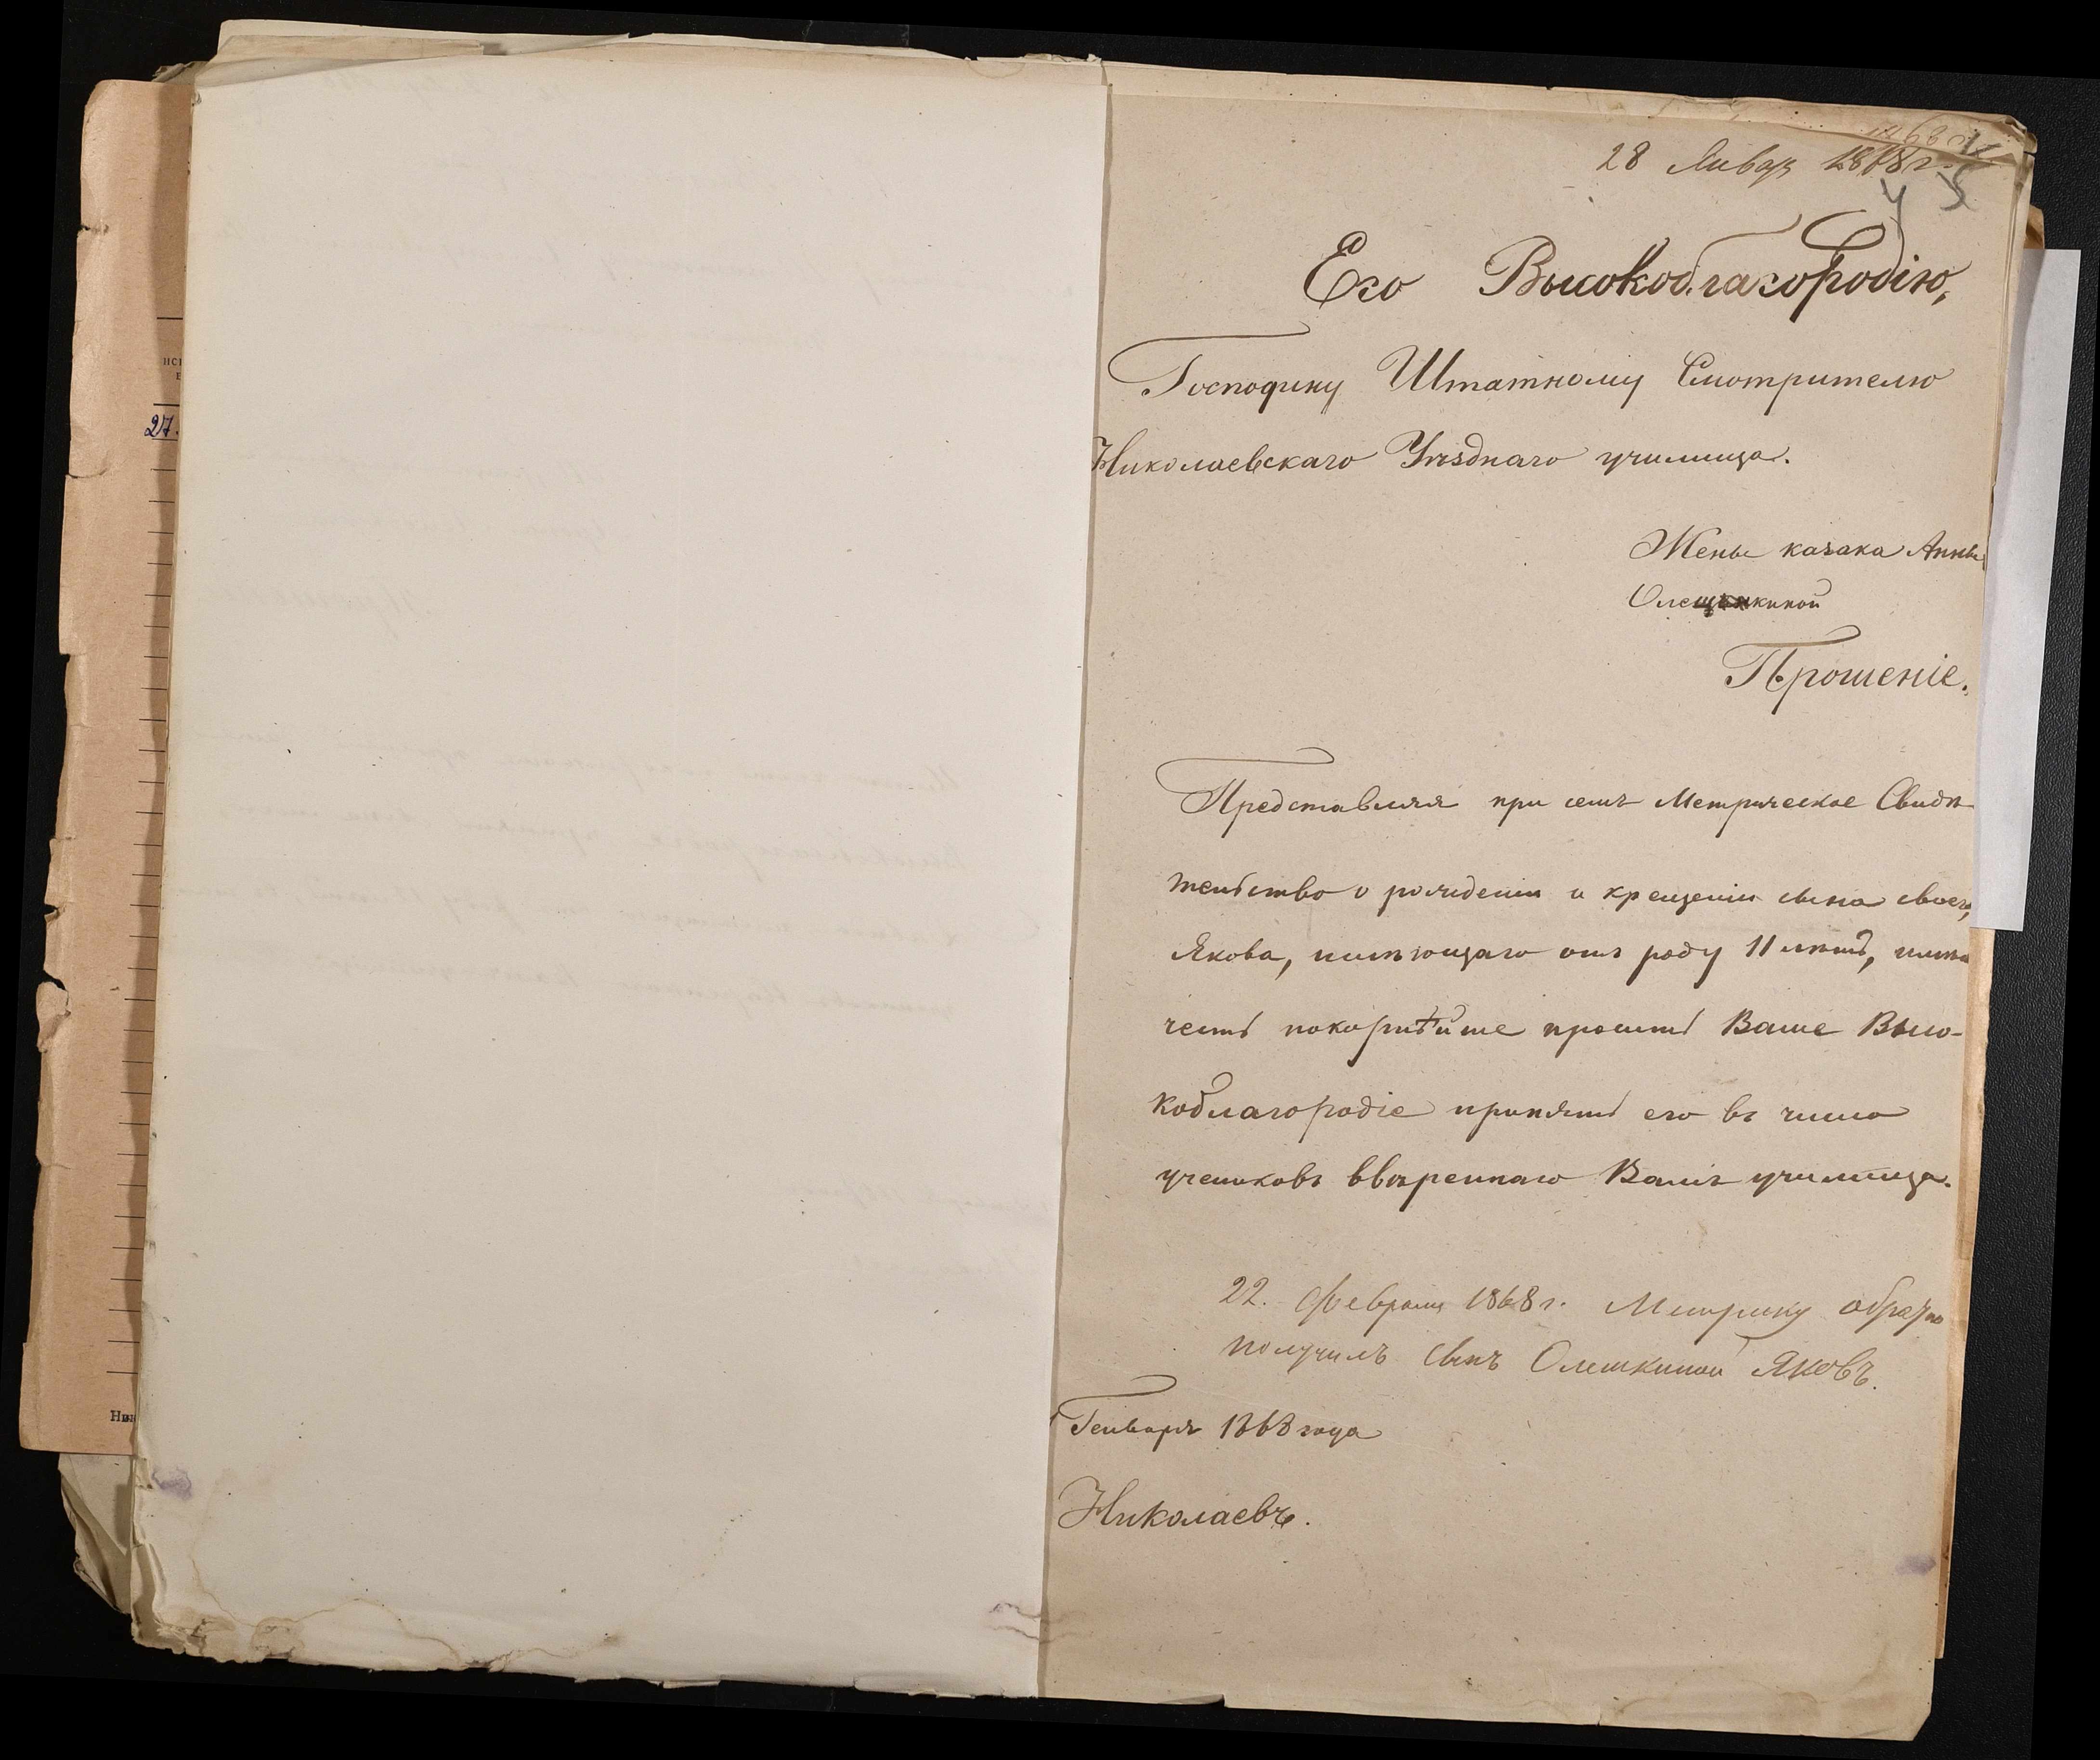 28 Января 1868 г.
4 5
Его Высокоблагородію,
Господину Штатному Смотрителю
Николаевскаго Уѣзднаго училища.
27.
Жены казака Анны
Олешкиной
Прошеніе.
Представляя при семъ Метрическое Свидѣ-
тельство о рожденіи и крещеніи сына своего,
Якова, имѣющаго отъ роду 11 лѣтъ, имѣю
честь покорнѣйше просить Ваше Высо-
коблагородіе принять его въ число
учениковъ ввѣреннаго Вамъ училища.
22. Февраля 1868 г. Метрику обратно
получилъ сынъ Олешкиной Яковъ.
Генваря 1868 года
Николаевъ.